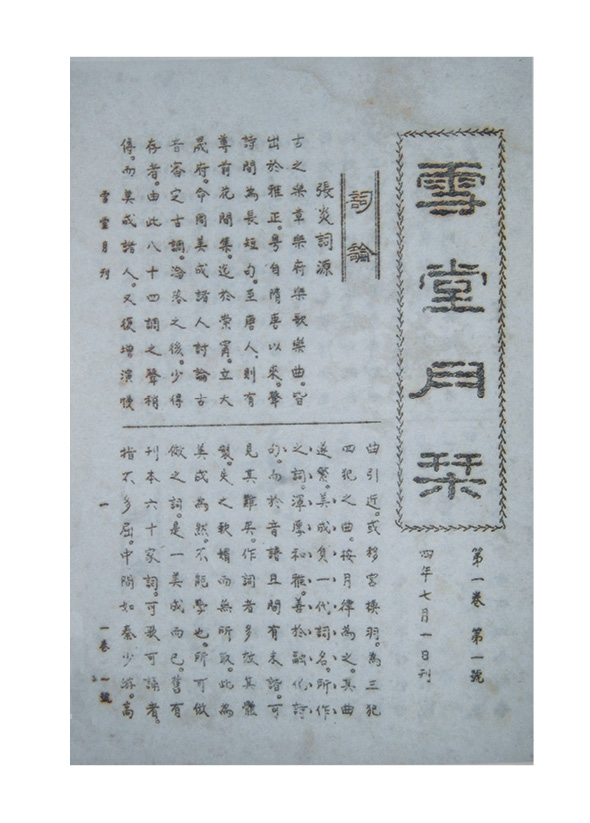 雪堂月栞
第一卷 第一號
四年七月一日刊
詞論
張炎詞源
古之樂章樂府樂歌樂曲。皆
出於雅正。粤自隋唐以來。聲
詩間為長短句。至唐人。則有
尊前花間集。迄於崇寧。立大
晟府。命周美成諸人討論古
音。審定古調。淪落之後。少得
存者。由此八十四調之聲稍
傳。而美成諸人。又復增演慢
曲引近。或移宮換羽。為三犯
四犯之曲。按月律為之。其曲
遂繁。美成負一代詞名。所作
之詞。渾厚和雅。善於融化詩
句。而於音譜且間有未諧。可
見其難矣。作詞者多效其體
製。失之軟媚而無所取。此為
美成為然。不能學也。所可倣
倣之詞。是一美成而已。舊有
刊本六十家詞。可歌可誦者。
指不多屈。中間如秦少游。高
雪堂月刊
一
一卷一號